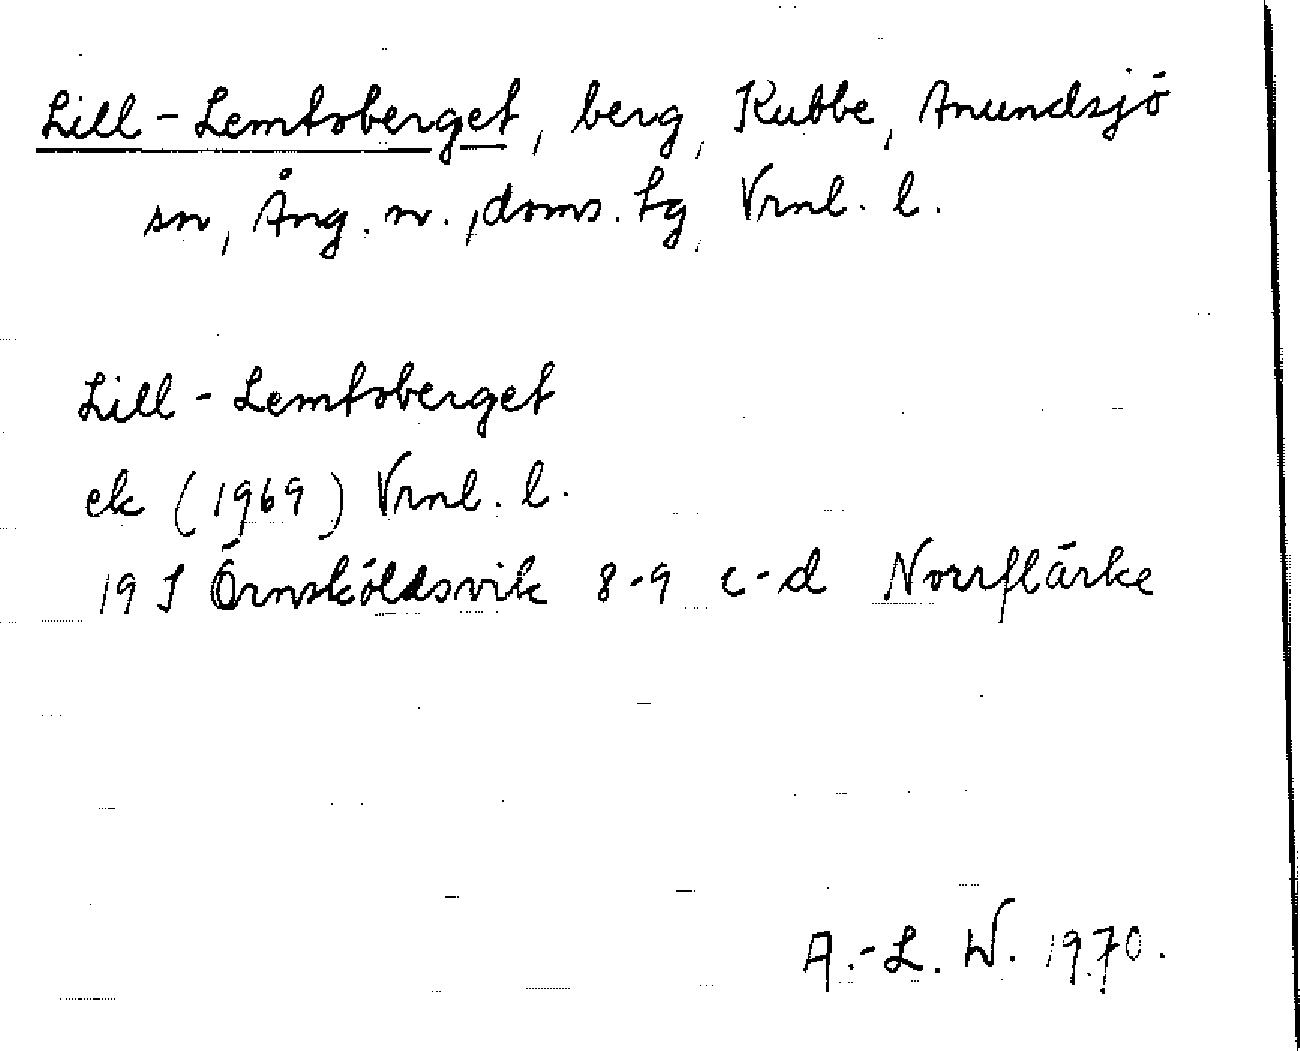 Lill-Lemtoberget, berg, Kubbe, Anundsjö
sn, Ång. n., doms. hg, Vrnl. l.
Lill-Lemtoberget
ek (1969) Vrnl. l.
19 J Örnsköldsvik 8-9 c-d Norrflärke
A.-L. W. 1970.